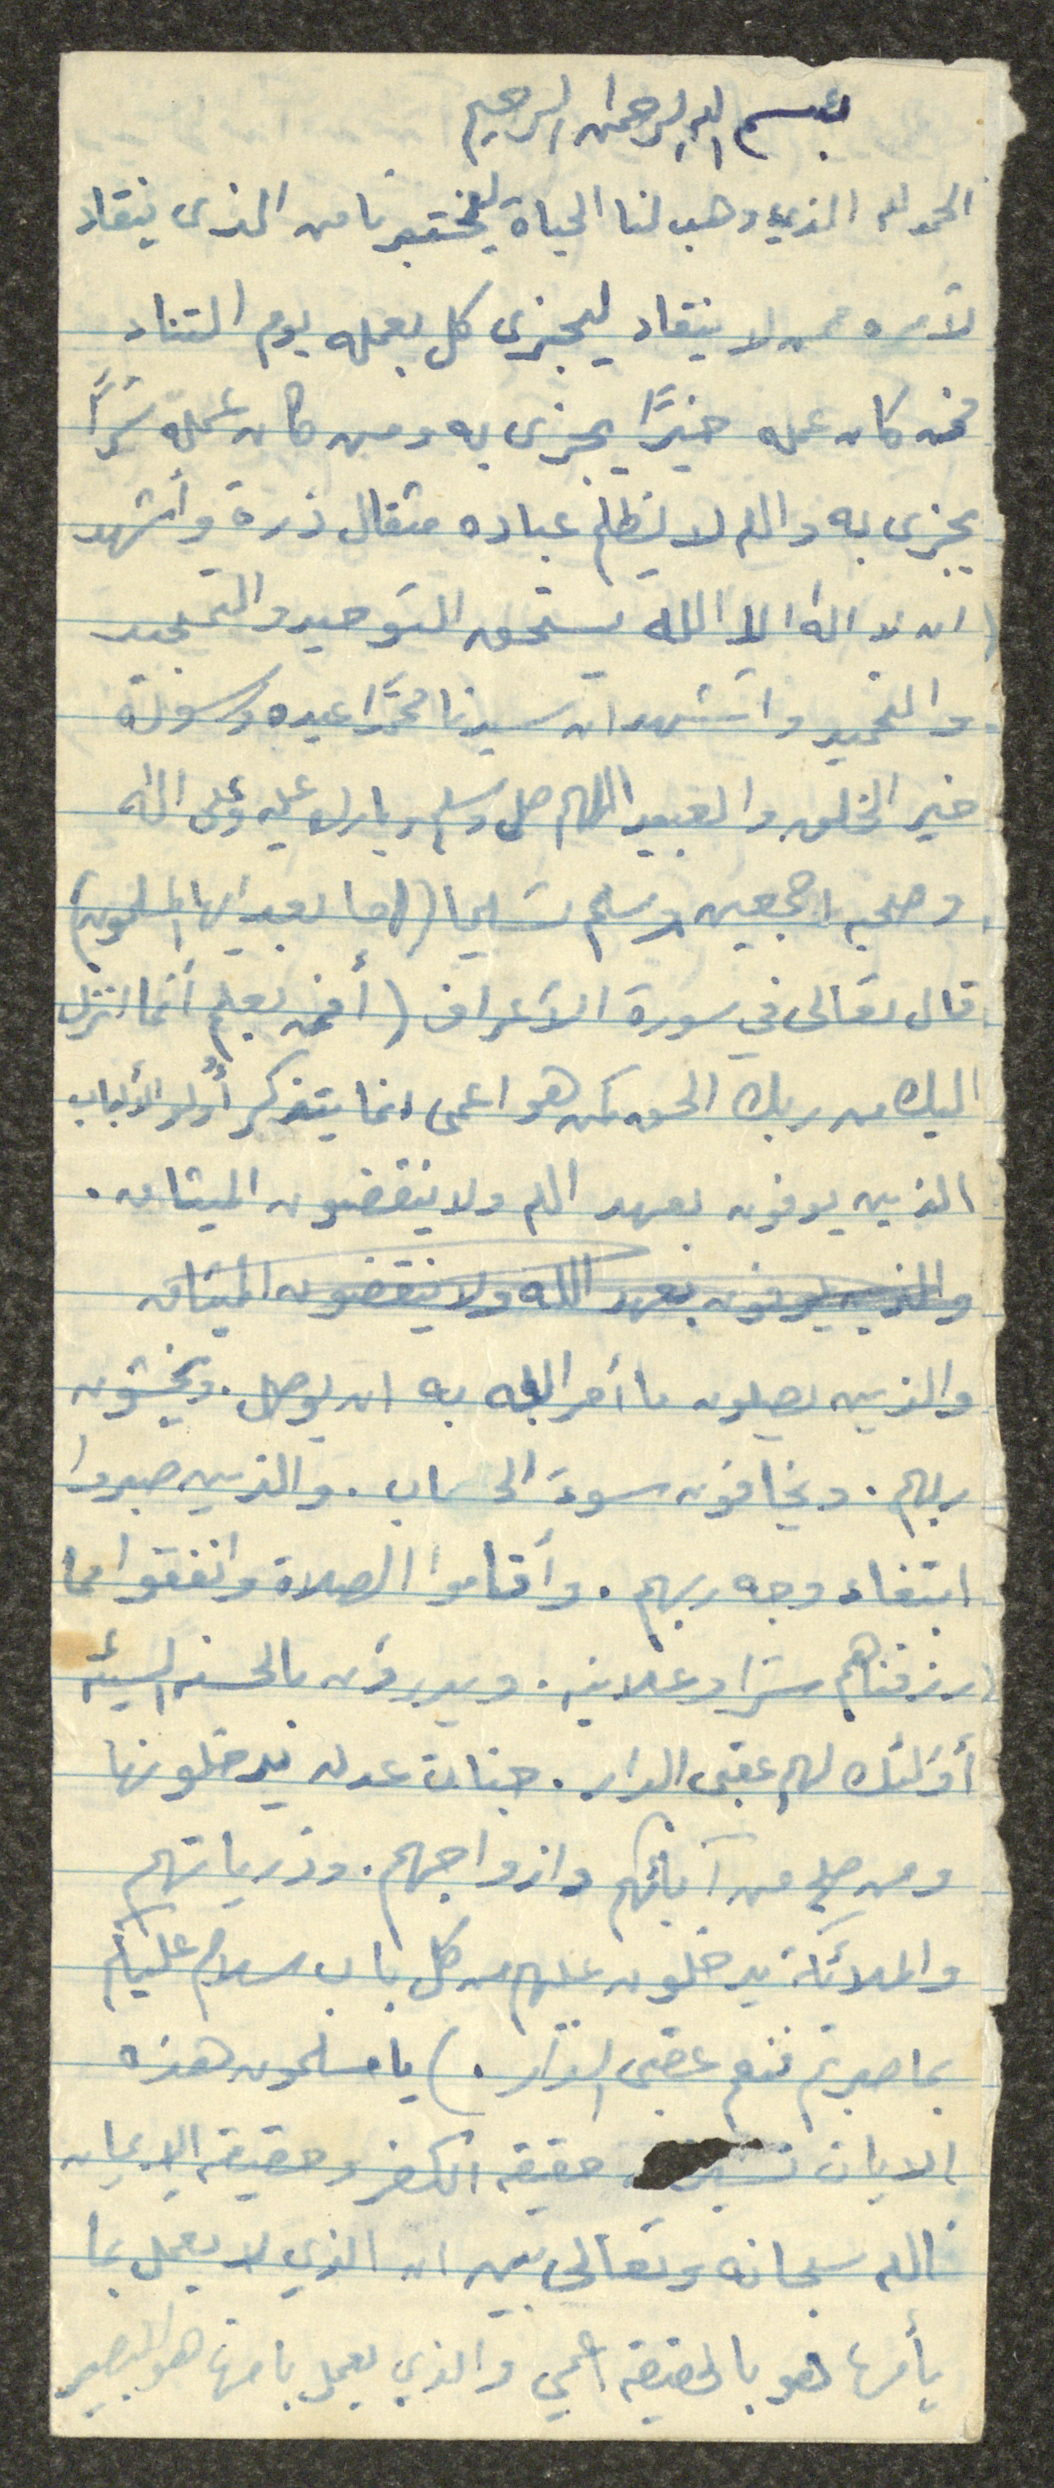 بسم الله الرحمن الرحيم
الحمد لله الذي وهب لنا الحياة ليختبرنا من الذي ينقاد
لأمره ممن لا ينقاد ليجزي كل بعمله يوم التناد
فمن كان عمله خيرًا يجزى به ومن كان عمله شرًا
يجزى به والله لا يظلم عباده مثقال ذرة وأشهد
ان لا اله الا الله يستحق التوحيد والتمجيد
والتحميد واشهد ان سيدنا محمدًا عبده ورسوله
خير الخلق والعبيد اللهم صل وسلم وبارك عليه وعلى اله
وصحبه اجمعين وسلم تسليما (اما بعد ايها المسلمون)
قال تعالى في سورة الاعراف (أفمن يعلم أنما انزل
اليك من ربك الحق كمن هو اعمى انما يتذكر أولو الألباب
الذين يوفون بعهد الله ولا ينقضون الميثاق .
والذين يوفون بعهد الله ولا ينقضون الميثاق
والذين يصلون ما أمر الله به ان يوصل . ويخشون
ربهم . ويخافون سوء الحساب . والذين صبروا
ابتغاء وجه ربهم . وأقاموا الصلاة وانفقوا مما
رزقناهم سرا وعلانيه . ويدرؤن بالحسنه السيئه
أولئك لهم عقبى الدار . جنات عدن يدخلونها
ومن صلح من آبائهم وازواجهم . وذرياتهم
والملائكة يدخلون عليهم من كل باب سلام عليكم
بما صبرتم فنعم عقبى الدار .) يا مسلمون هذه
الايات حقيقه الكفر وحقيقه الايمان
فالله سبحانه وتعالى بين ان الذي لا يعمل بما
هو بالحقيقه اعمي والذي يعمل هو البصير